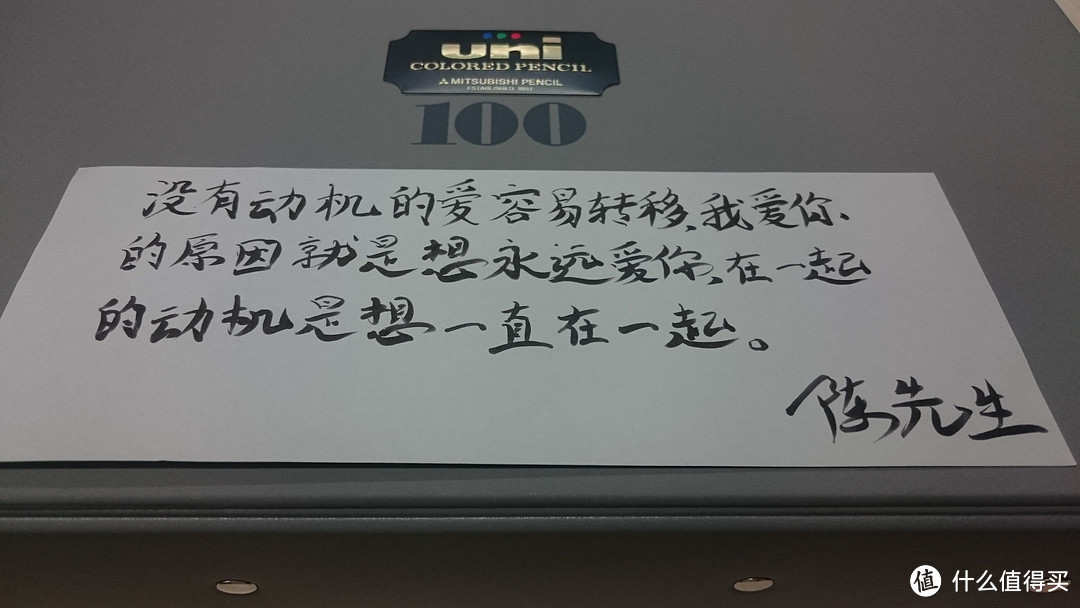 uni
COLORED PENCIL
MITSUBISHI PENCIL
ESTABLISHED 1887
100
没有动机的爱容易转移、我爱你、
的原因就是想永远爱你、在一起
的动机是想一直在一起。
陈先生
值 什么值得买